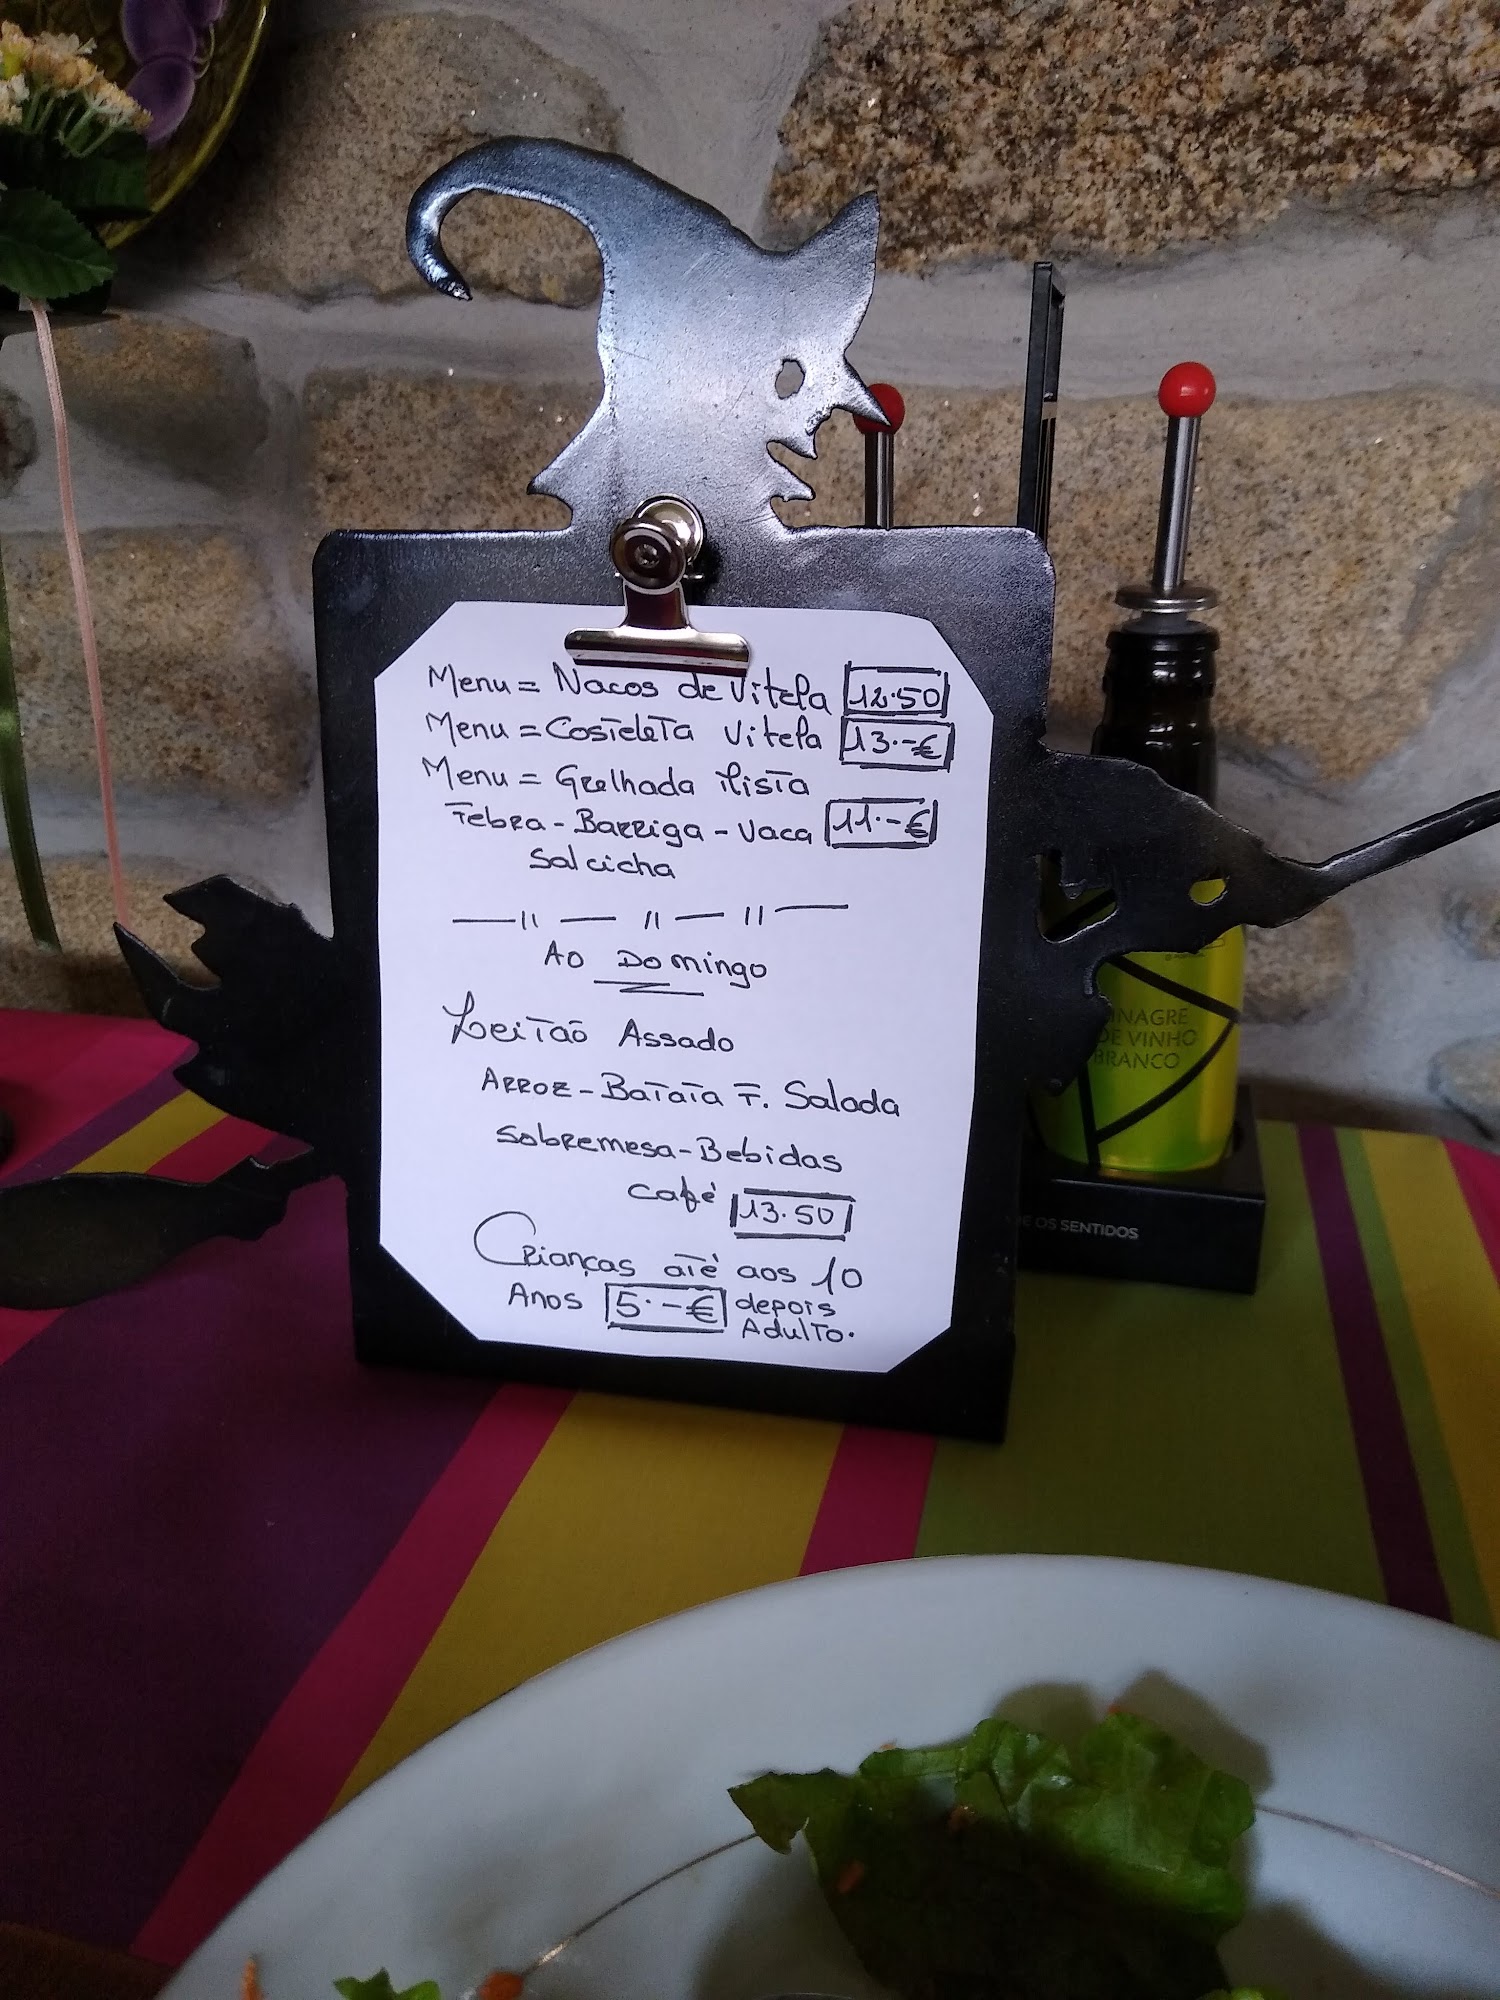 Menu = Nacos de Vitela 12.50
Menu = Costeleta Vitela 13.-€
Menu = Grelhada Mista
Febra - Barriga - Vaca 11.-€
Salcicha
Ao Domingo
Leitão Assado
Arroz - Batata F. Salada
Sobremesa - Bebidas
Café 13.50
Crianças até aos 10
Anos 5.-€ depois
Adulto.
INAGRE
DE VINHO
BRANCO
E OS SENTIDOS